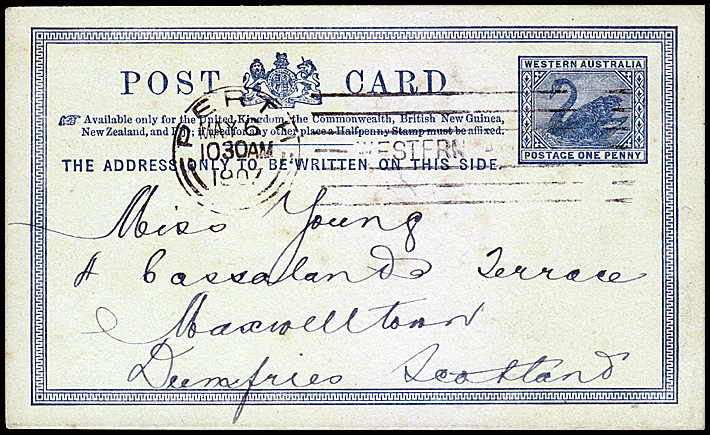 POST CARD
WESTERN AUSTRALIA
POSTAGE ONE PENNY
Available only for the United Kingdom, the Commonwealth, British New Guinea,
New Zealand, and Fiji; if used for any other place a Halfpenny Stamp must be affixed.
THE ADDRESS ONLY TO BE WRITTEN ON THIS SIDE.
PERTH
10 30 AM
WESTERN
Miss Young
Cassalands Terrace
Maxwelltown
Dumfries Scotland